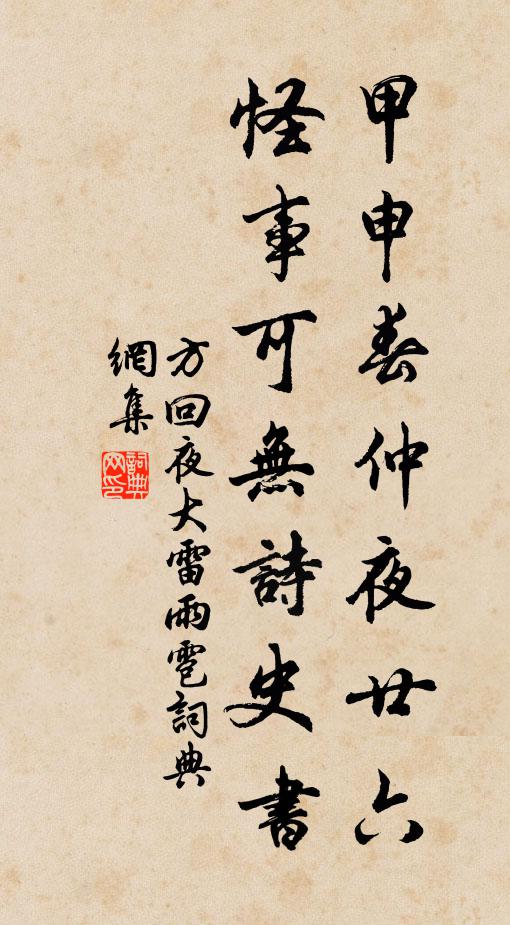 甲申春仲夜廿六
怪事可無詩史書
方回夜大雷雨雹詞典
網集
詞典
网印